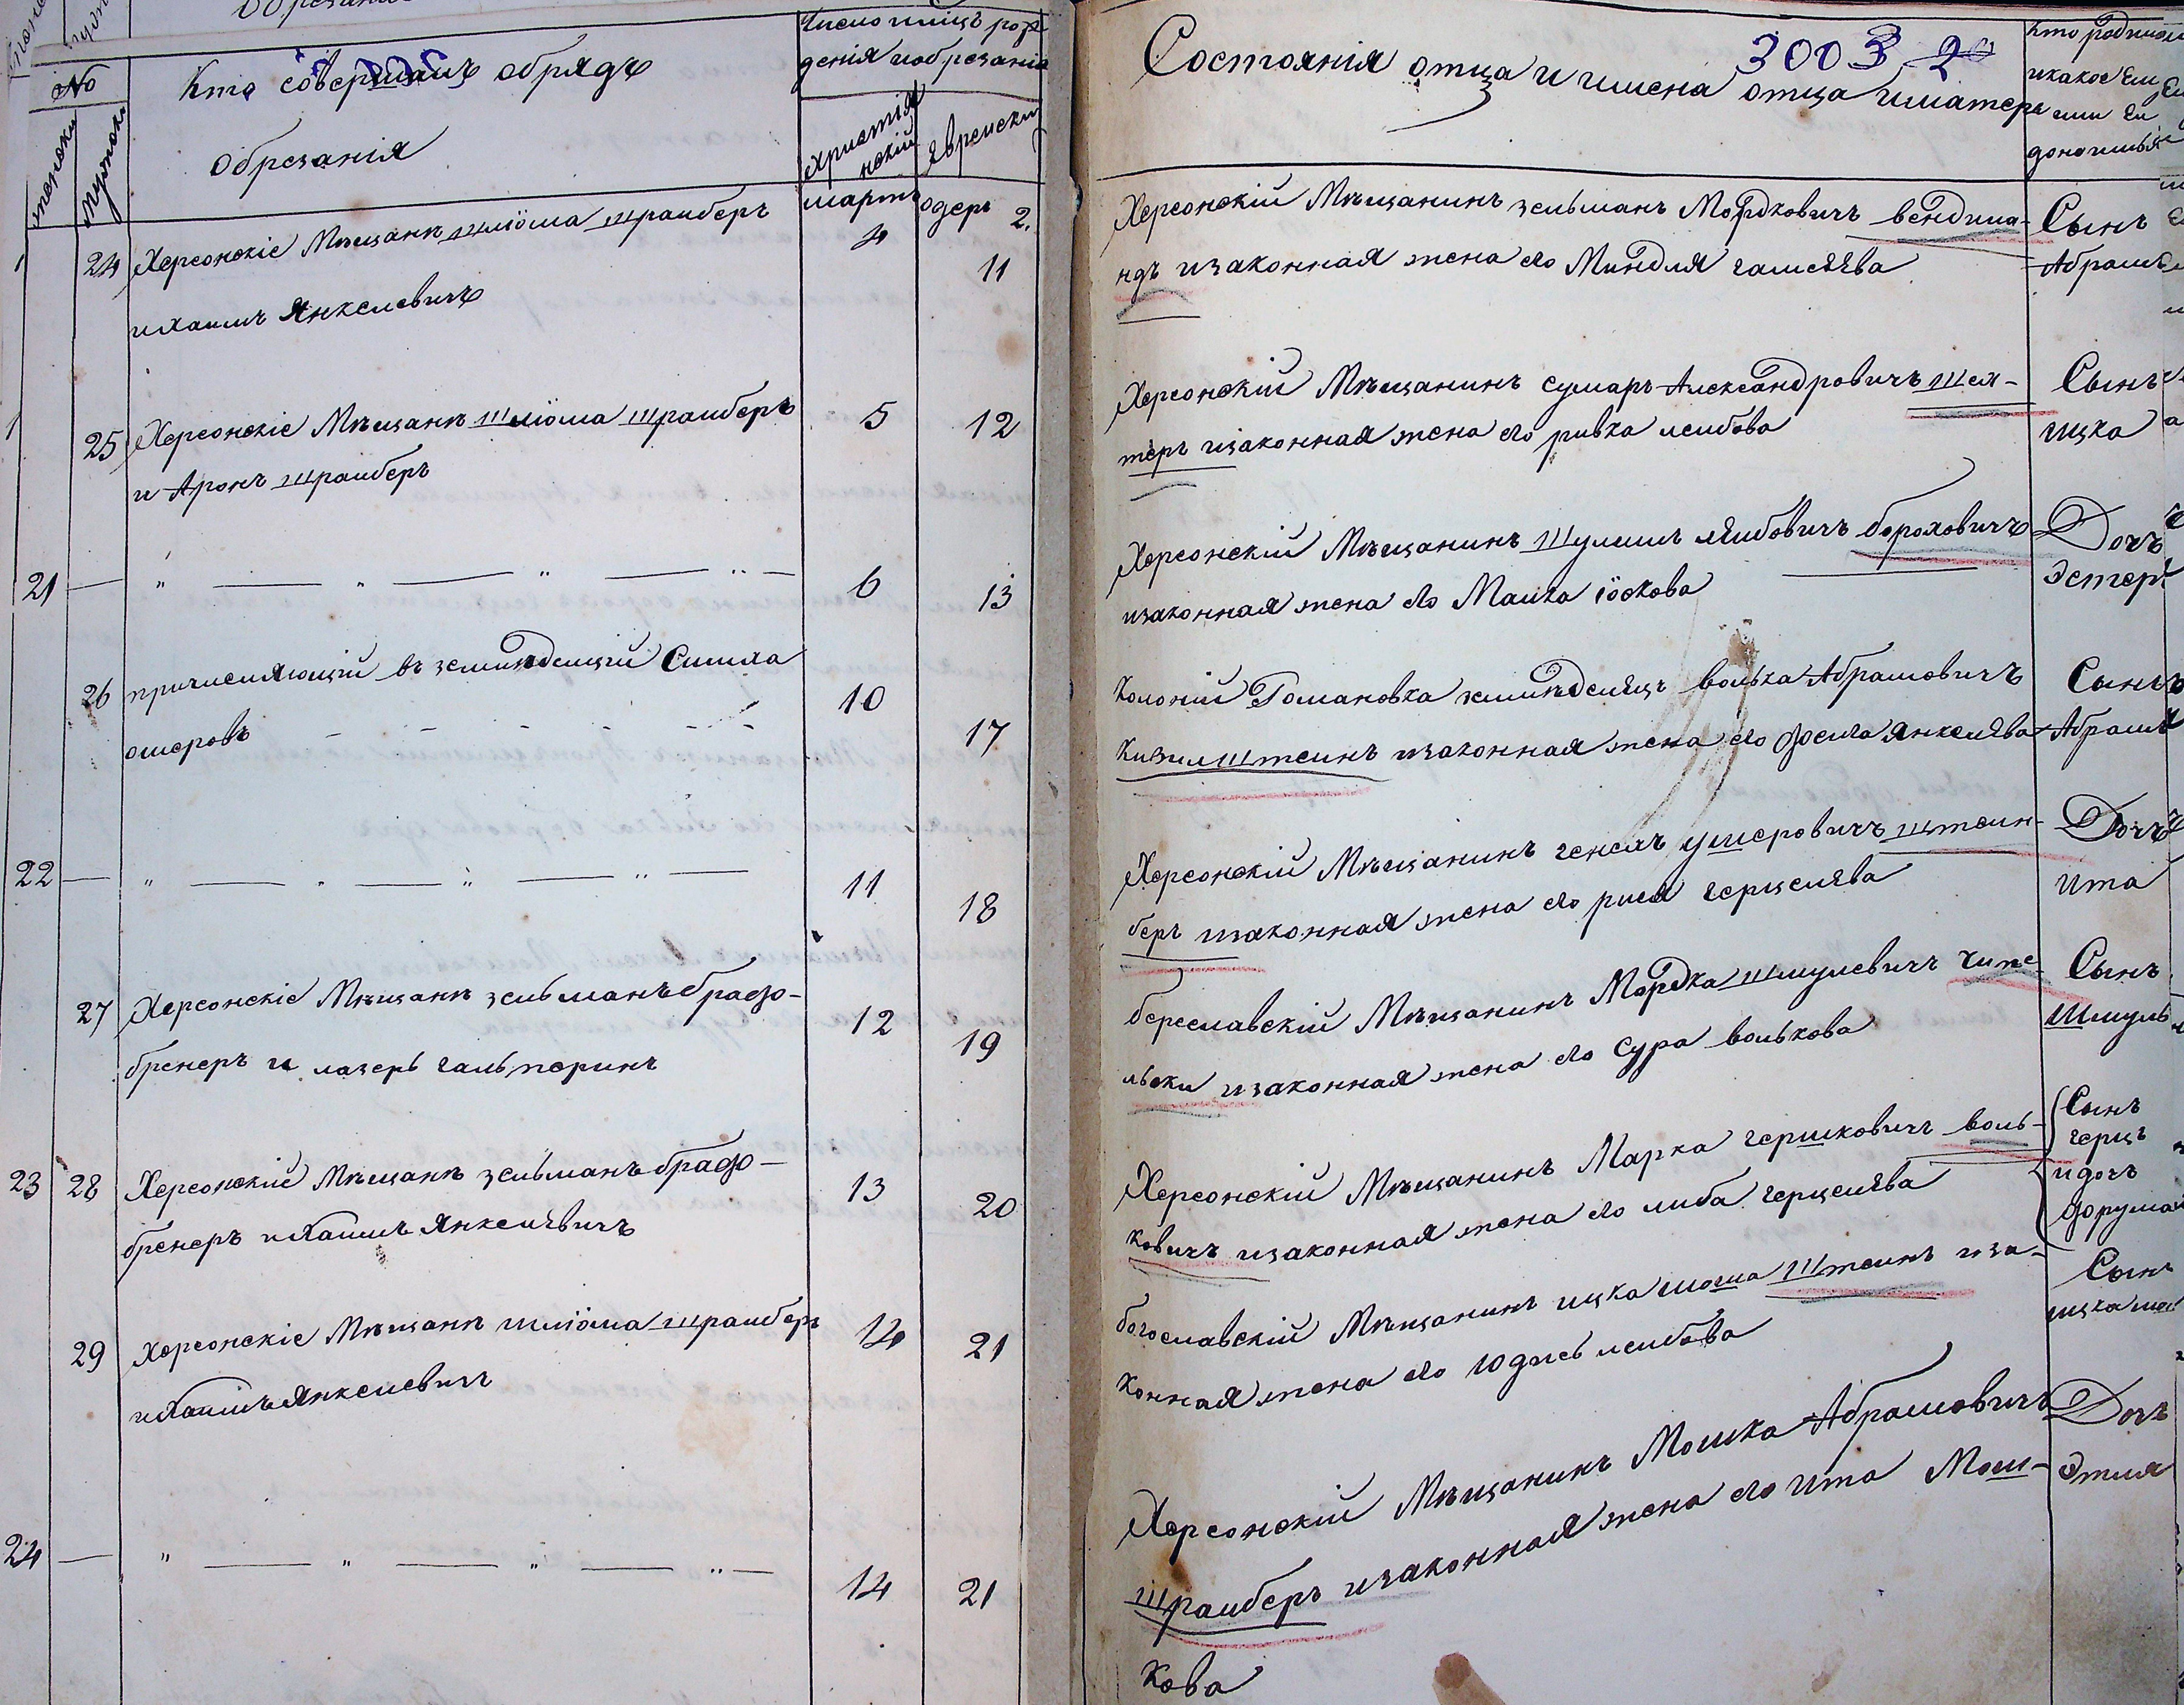 №
женски
мужски
Кто совершалъ обрядъ
обрезанія
Число и мѣсцъ рож
денія и обрезанія
христіа
нскій
Еврейски
мартъ
одеръ 2.
24 Херсонскіе Мѣщанъ шлїома шрайберъ 4 11
и Хаимъ Янкелевичъ
25 Херсонскіе Мѣщанъ шлїома шрайберъ 5 12
и Аронъ шрайберъ
21 — „ — „ — „ — „ — 6 13
26 причисляющій въ земледелцій Симха 10 17
ошеровъ
22 — „ — „ — „ — „ — 11 18
27 Херсонскіе Мѣщанъ зельманъ брафо- 12 19
бренеръ и лазеръ гальперинъ
23 28 Херсонскій Мѣщанъ зельманъ брафо- 13 20
бренеръ и Хаимъ Янкелѣвичъ
29 Херсонскіе Мѣщанъ шлїома шрайберъ 14 21
и Хаимъ Янкелевичъ
24 — „ — „ — „ — „ — 14 21
3003
Состоянія отца и имена отца и матери
Кто родился
и какое Ему
или Ей
дано имя
Херсонскій Мѣщанинъ зельманъ Мордковичъ вендила-
ндъ и законная жена его Миндля
Сынъ
Абрамъ
Херсонскій Мѣщанинъ сумаръ Александровичъ шех-
теръ и законная жена его ривка лейбова
Сынъ
ицка
Херсонскій Мѣщанинъ Шулимъ лѣйбовичъ бороховичъ
и законная жена его Малка їоскова
Дочъ
Эстеръ
Колоній Романовка земледелецъ волька Абрамовичъ
кизилштейнъ и законная жена его фейга Янкелѣва
Сынъ
Абрамъ
Херсонскій Мѣщанинъ генехъ ушеровичъ штейн-
беръ и законная жена его рися герцелѣва
Дочъ
Ита
береславскій Мѣщанинъ Мордка шмулевичъ чипе-
льски и законная жена его Сура волькова
Сынъ
Шмуль
Херсонскій Мѣщанинъ Марка гершковичъ воль-
ковичъ и законная жена его либа герцелѣва
Сынъ
герцъ
и дочъ
фрума
богославскій Мѣщанинъ ицка моша Штейнъ и за-
конная жена его Юдисъ лейбова
Сынъ
Херсонскій Мѣщанинъ Мошка Абрамовичъ
шрайберъ и законная жена его Ита Мош-
кова
Дочъ
Этля